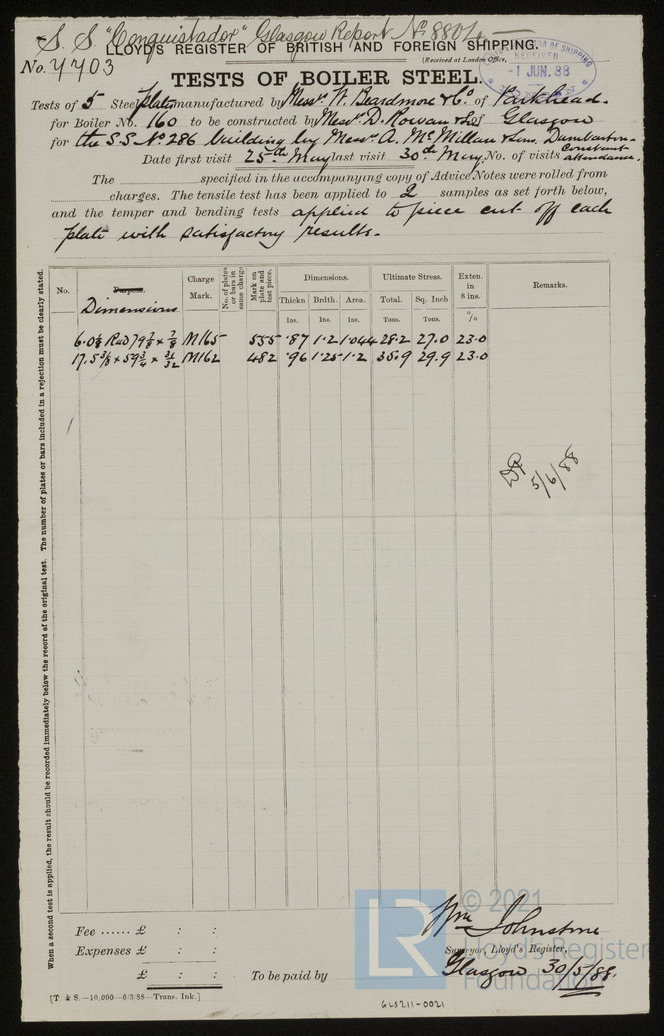 S. S "Conquistador" Glasgow Report No. 8804
LLOYD'S REGISTER OF BRITISH AND FOREIGN SHIPPING.
No. 7703
(Received at London Office,
RECEIVED
-1 JUN. 88
TESTS OF BOILER STEEL.
Tests of 5 Steel plates manufactured by Messrs. W. Beardmore & Co. of Parkhead.
for Boiler No. 160 to be constructed by Messrs. D. Rowan & of Glasgow
for the S.S. No. 286 building by Messrs. A. McMillan & Son, Dumbarton
Date first visit 25th May last visit 30th May. No. of visits Constant attendance.
The specified in the accompanying copy of Advice Notes were rolled from
charges. The tensile test has been applied to 2 samples as set forth below,
and the temper and bending tests applied to piece cut off each
plate with satisfactory results.
No. Purpose. Dimensions Charge Mark. No. of plates or bars in same charge Mark on plate and test piece. Dimensions. Ultimate Stress. Exten. in 8 ins. Remarks.
Thickn Brdth. Area. Total. Sq. Inch
Ins. Ins. Ins. Tons. Tons. %
6.0⅛ Rad 79⅞ × ⅞ M165 555 .87 1.2 1.044 28.2 27.0 23.0
17.5⅜ × 59¾ × 31/32 M162 482 .96 1.25 1.2 35.9 29.9 23.0
5/6/88
When a second test is applied, the result should be recorded immediately below the record of the original test. The number of plates or bars included in a rejection must be clearly stated.
Fee ...... £ : :
Expenses £ : :
£ : :
To be paid by
Wm Johnstone
Surveyor, Lloyd's Register,
Glasgow 30/5/88.
[T. & S.—10,000—6/3/88—Trans. Ink.]
GLS211-0021
LR
© 2021
Lloyd's Register
Foundation